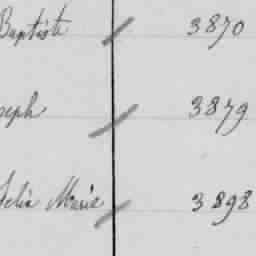 Baptiste 3870
seph 3879
Felix Marie 3898